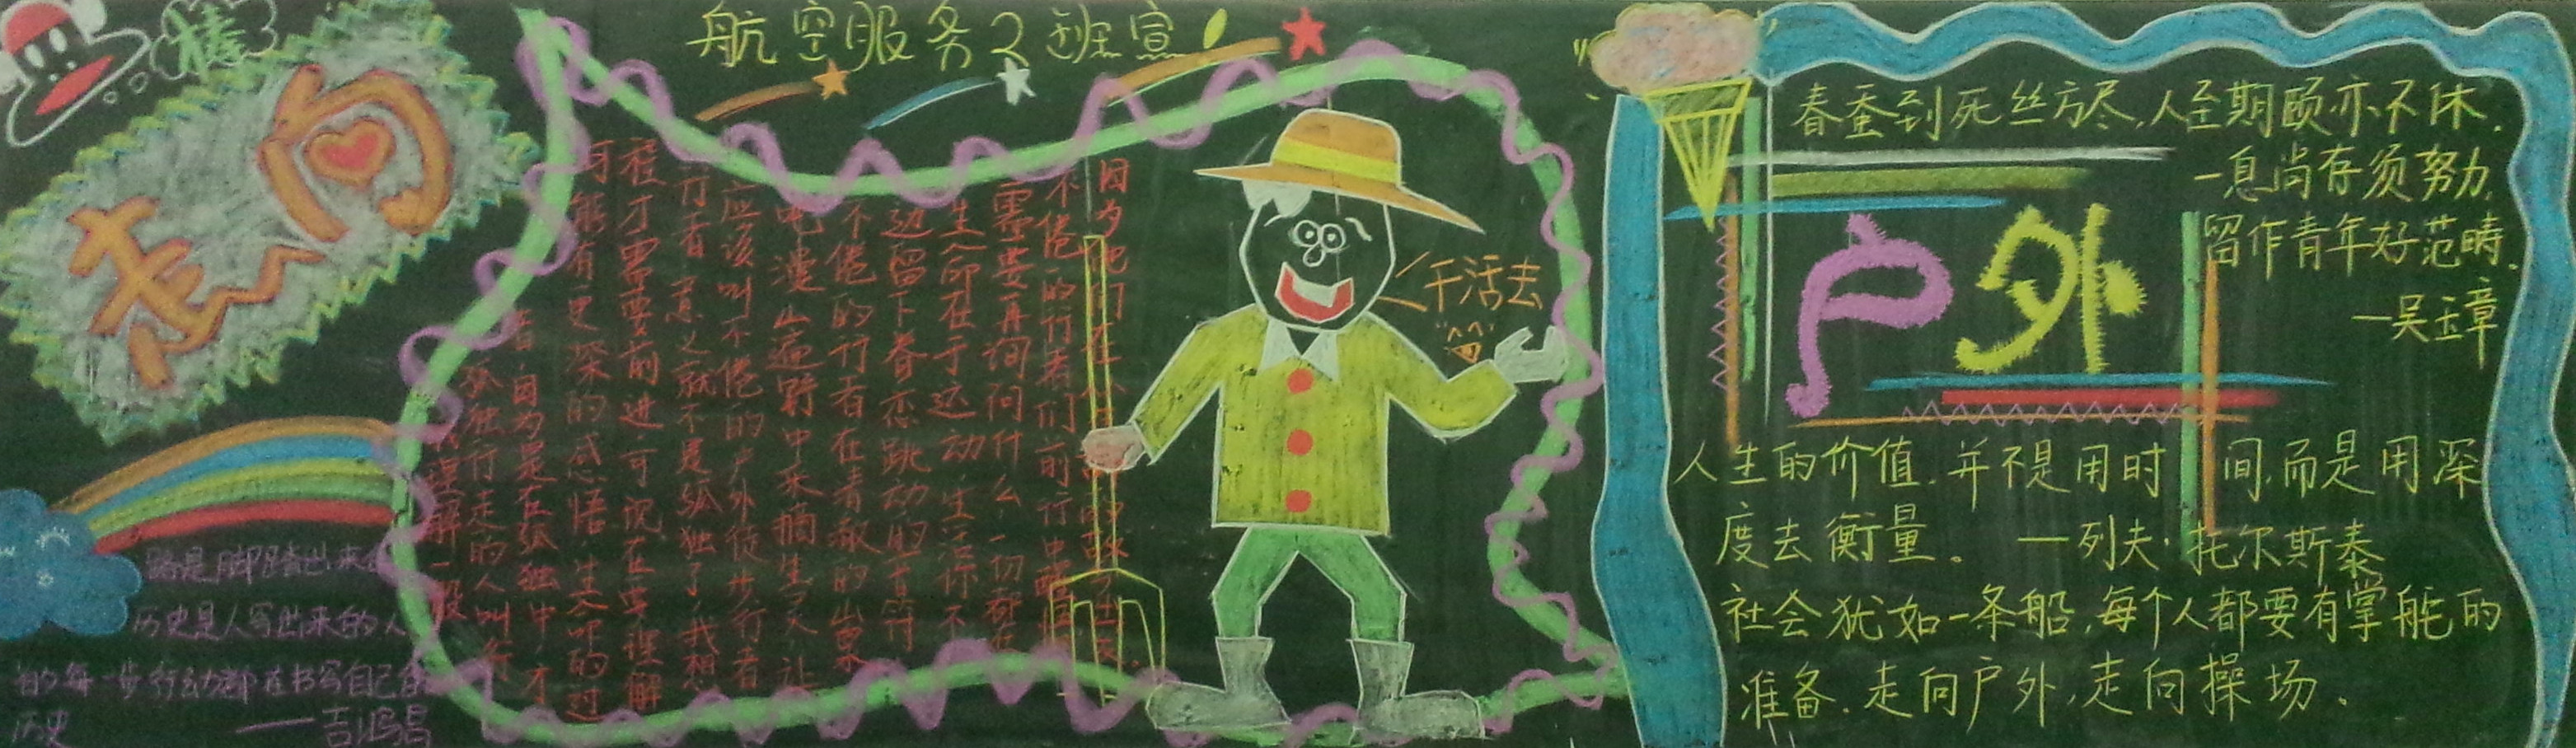 棒
走向
航空服务2班宣
干活去
因为他们在
不倦的行者们前行中
需要再询问什么一切都在
生命在于运动生活你不
边留下眷恋跳动的音符
不倦的行者在青翠的山
吧漫山遍野中采摘生灵让
应该叫不倦的户外徒步行者
行者意义就不是孤独了我想
程才需要前进可况在要理解
可能有更深的感悟生命的过
者因为是在孤独中才
孤独行走的人叫行
理解一般
路是脚踏出来
历史是人写出来的人
的每一步行动都在书写自己的
历史
——吉鸿昌
春蚕到死丝方尽,人至期颐亦不休.
一息尚存须努力,
留作青年好范畴.
—吴玉章
户外
人生的价值.并不是用时间,而是用深
度去衡量。 —列夫·托尔斯泰
社会犹如一条船,每个人都要有掌舵的
准备.走向户外,走向操场.